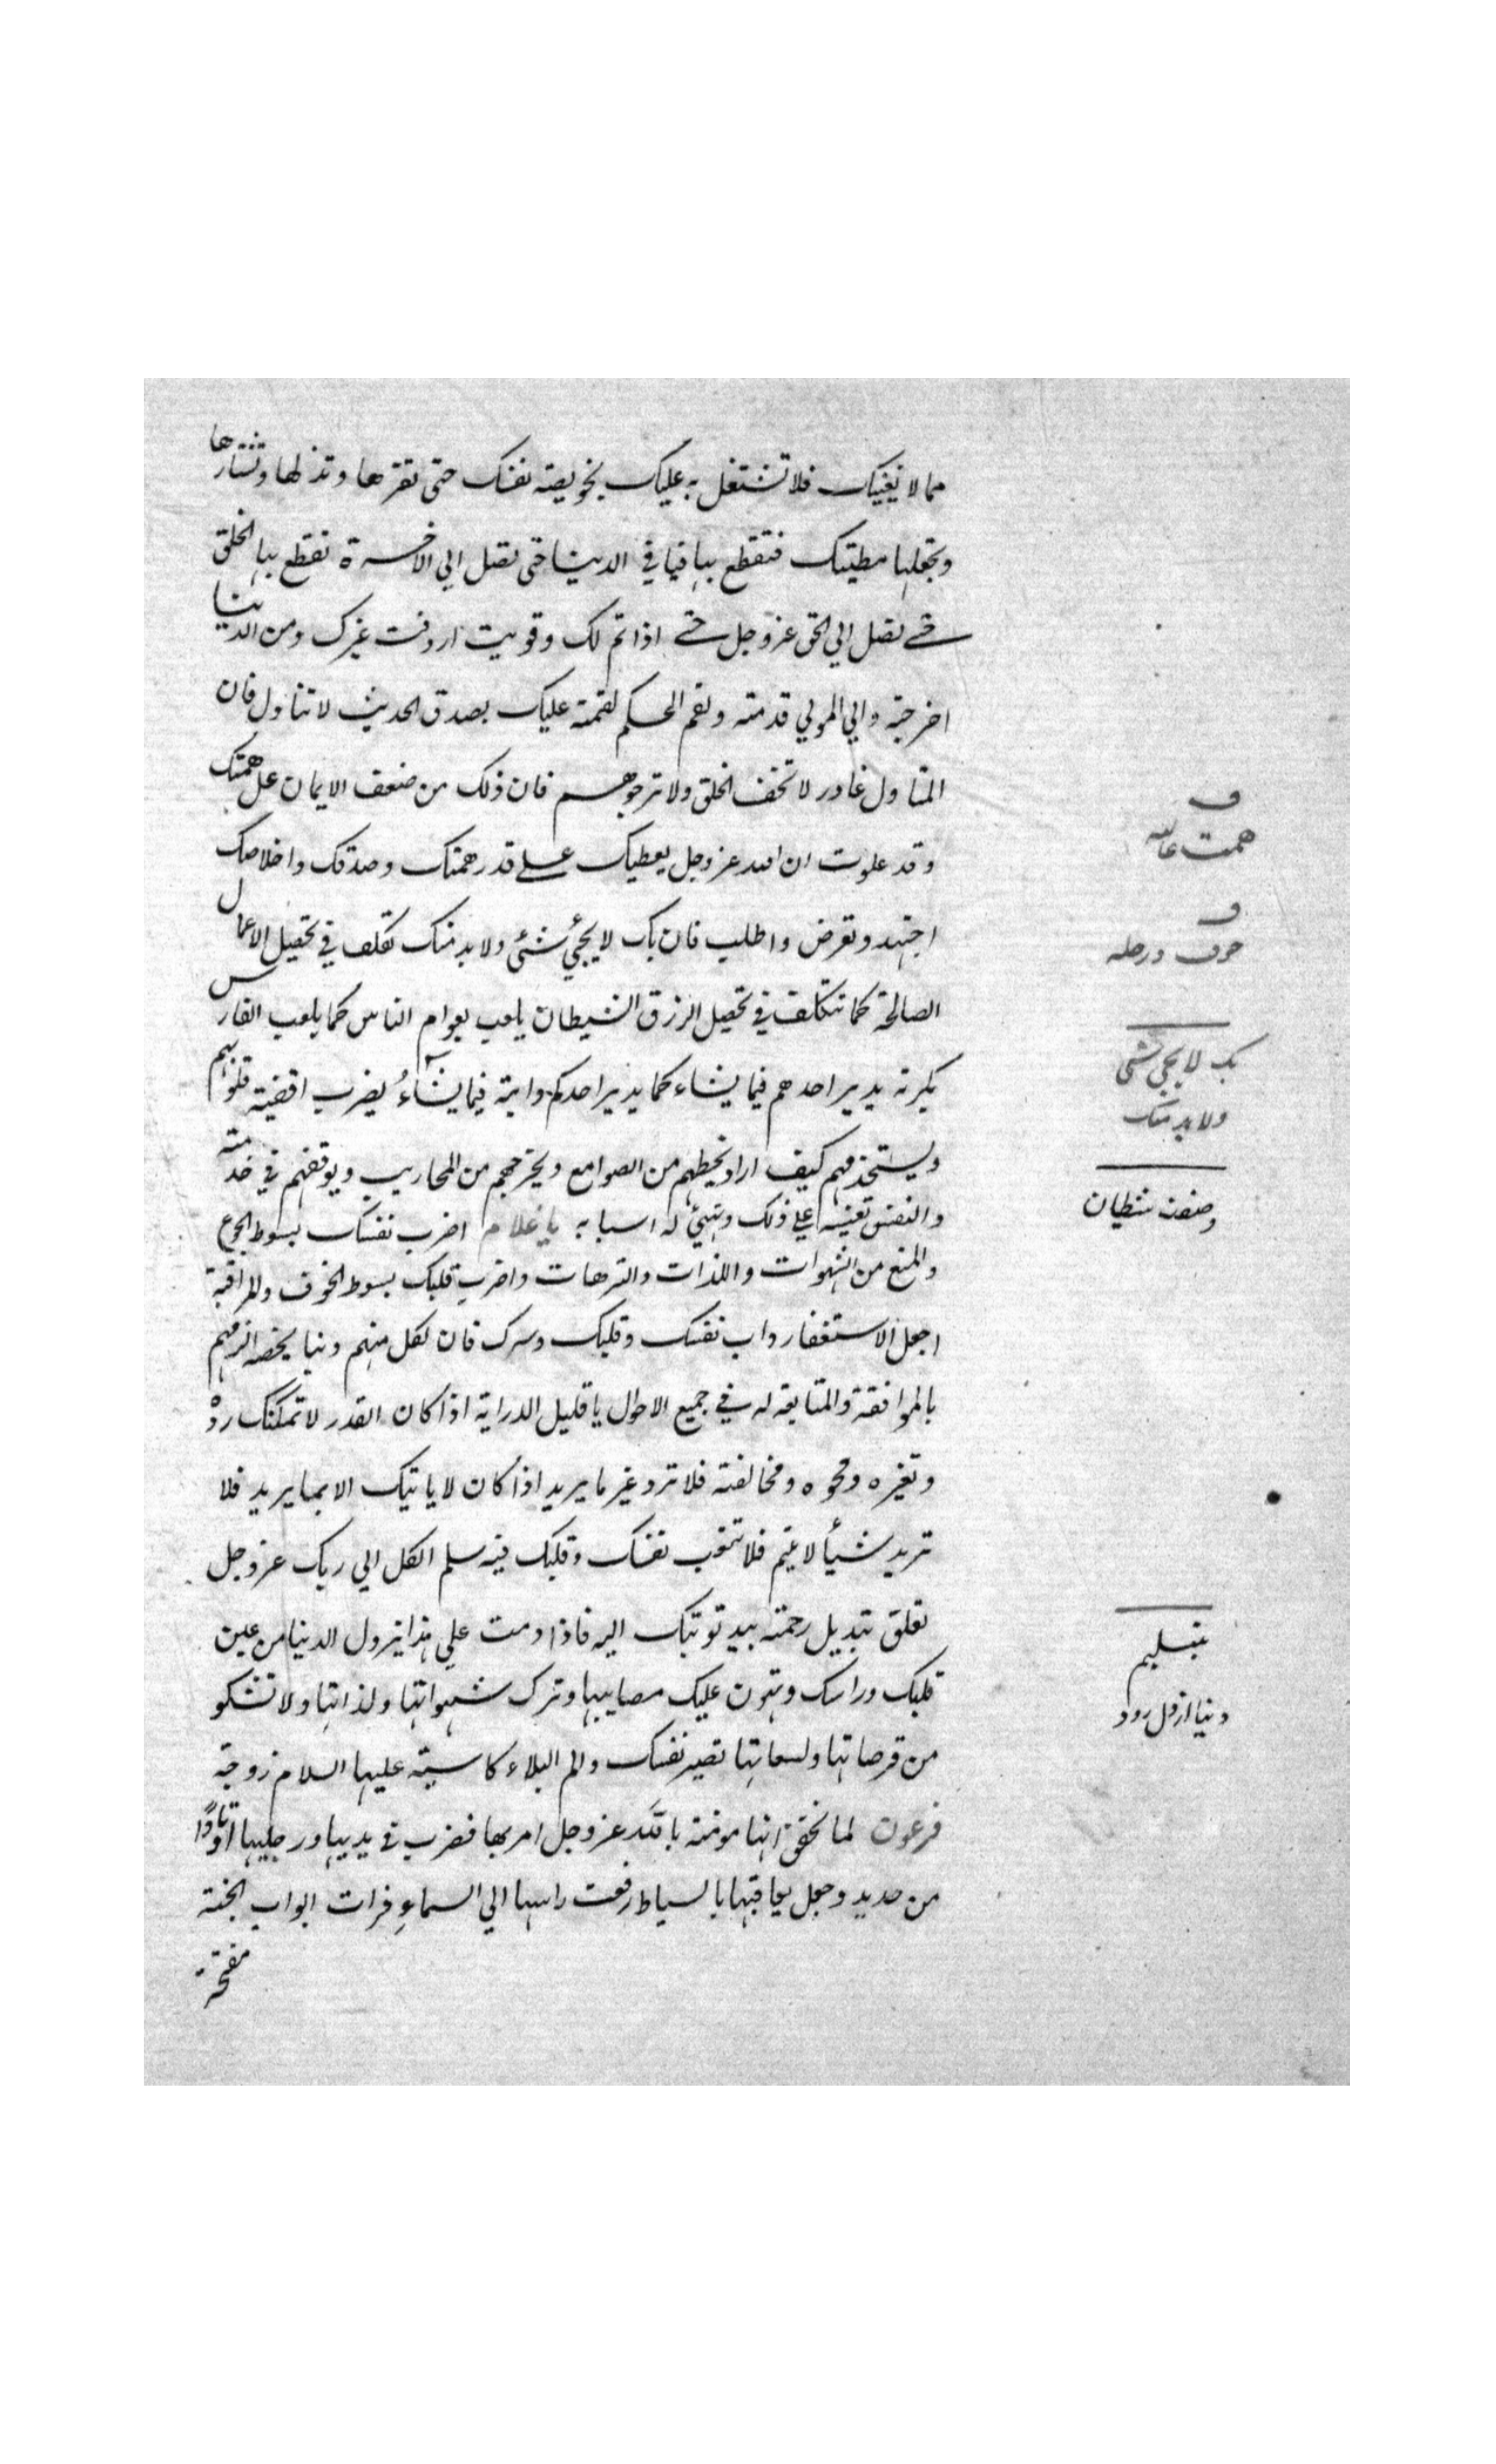 مما لا يغنيك فلا تشتغل به عليك بخويصة نفسك حتى تقرها وتذلها وتستأرها
وتجعلها مطيتك فتقطع بها فيافي الدنيا حتى تصل الى الاخرة تقطع بها الخلق
حتى تصل الى الحق عزوجل حتى اذا تم لك وقويت اردفت غيرك ومن الدنيا
اخرجته والى المولى قدمته ولقم الحكم لقمته عليك بصدق الحديث لا تتاول فان
المتاول غادر لا تخف الخلق ولا ترجوهم فان ذلك من ضعف الايمان عل همتك
وقد علوت ان الله عزوجل يعطيك على قدر همتك وصدقك واخلاصك
اجتهد وتعرض واطلب فان بك لا يجيء شئ ولابد منك تكلف في تحصيل الاعمال
الصالحة كما تتكلف في تحصيل الرزق الشيطان يلعب بعوام الناس كما يلعب الفارس
بكرته يدير احدهم فيما يشاء كما يدير احدكم دابته فيما يشاء يضرب اقفية قلوبهم
ويستخدمهم كيف اراد يحطهم من الصوامع ويخرجهم من المحاريب ويوقفهم في خدمته
والنفس تعينه على ذلك وتهيئ له اسبابه يا غلام اضرب نفسك بسوط الجوع
والمنع من الشهوات واللذات والترهات واضرب قلبك بسوط الخوف والمراقبة
اجعل الاستغفار داب نفسك وقلبك وسرك فان لكل منهم ذنبا يخصه الزمهم
بالموافقة والمتابعة له في جميع الاحوال يا قليل الدراية اذا كان القدر لا تمكنك رده
وتغيره ومحوه ومخالفته فلا ترد غير ما يريد اذا كان لا ياتيك الا بما يريد فلا
تريد شيأ لا يتم فلا تتعب نفسك وقلبك فيه سلم الكل الى ربك عزوجل
تعلق بذيل رحمته بيد توبتك اليه فاذا دمت على هذا يزول الدنيا من عين
قلبك وراسك وتهون عليك مصايبها وترك شهواتها ولذاتها ولا تشكو
من قرصاتها ولسعاتها تصير نفسك والم البلاء كآسية عليها السلام زوجة
فرعون لما تحقق انها مومنة بالله عزوجل امر بها فضرب في يديها ورجليها اوتادا
من حديد وجعل يعاقبها بالسياط رفعت راسها الى السماء فرات ابواب الجنة
مفتحة
ف
همت عاليه
ف
بك لا يجيء شئ
ولابد منك
وصف شيطان
تسليم
دنيا از دل رود